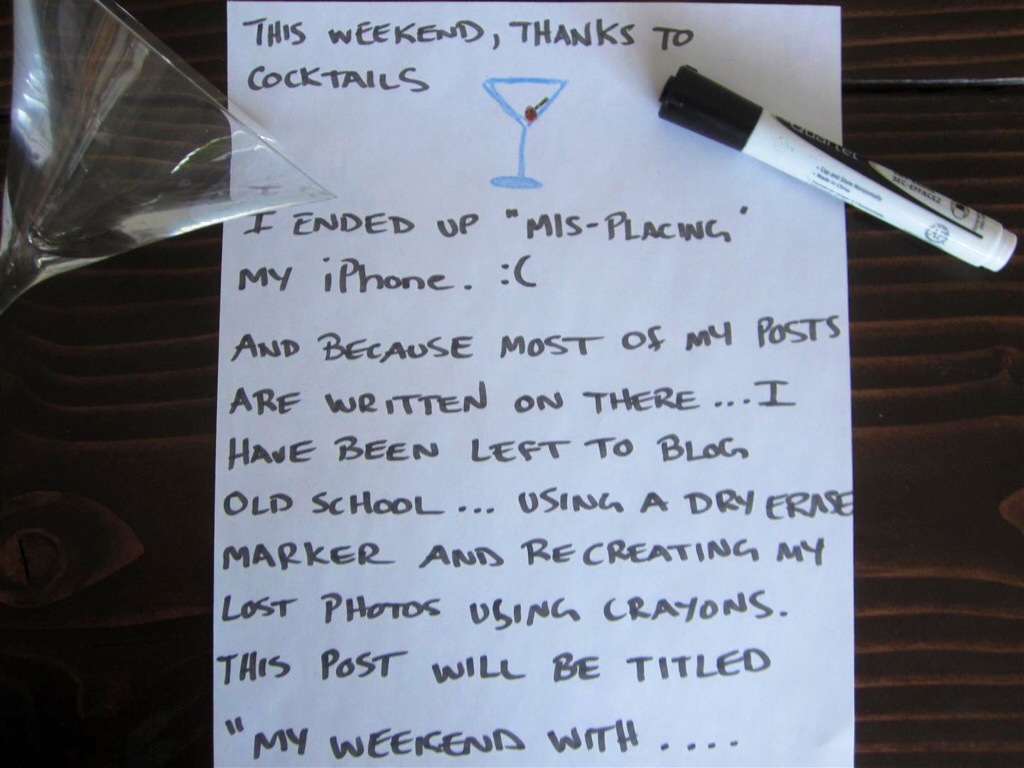 THIS WEEKEND, THANKS TO
COCKTAILS
I ENDED UP "MIS-PLACING"
MY iPhone. :(
AND BECAUSE MOST OF MY POSTS
ARE WRITTEN ON THERE...I
HAVE BEEN LEFT TO BLOG
OLD SCHOOL... USING A DRY ERASE
MARKER AND RECREATING MY
LOST PHOTOS USING CRAYONS.
THIS POST WILL BE TITLED
"MY WEEKEND WITH ....
Quartet